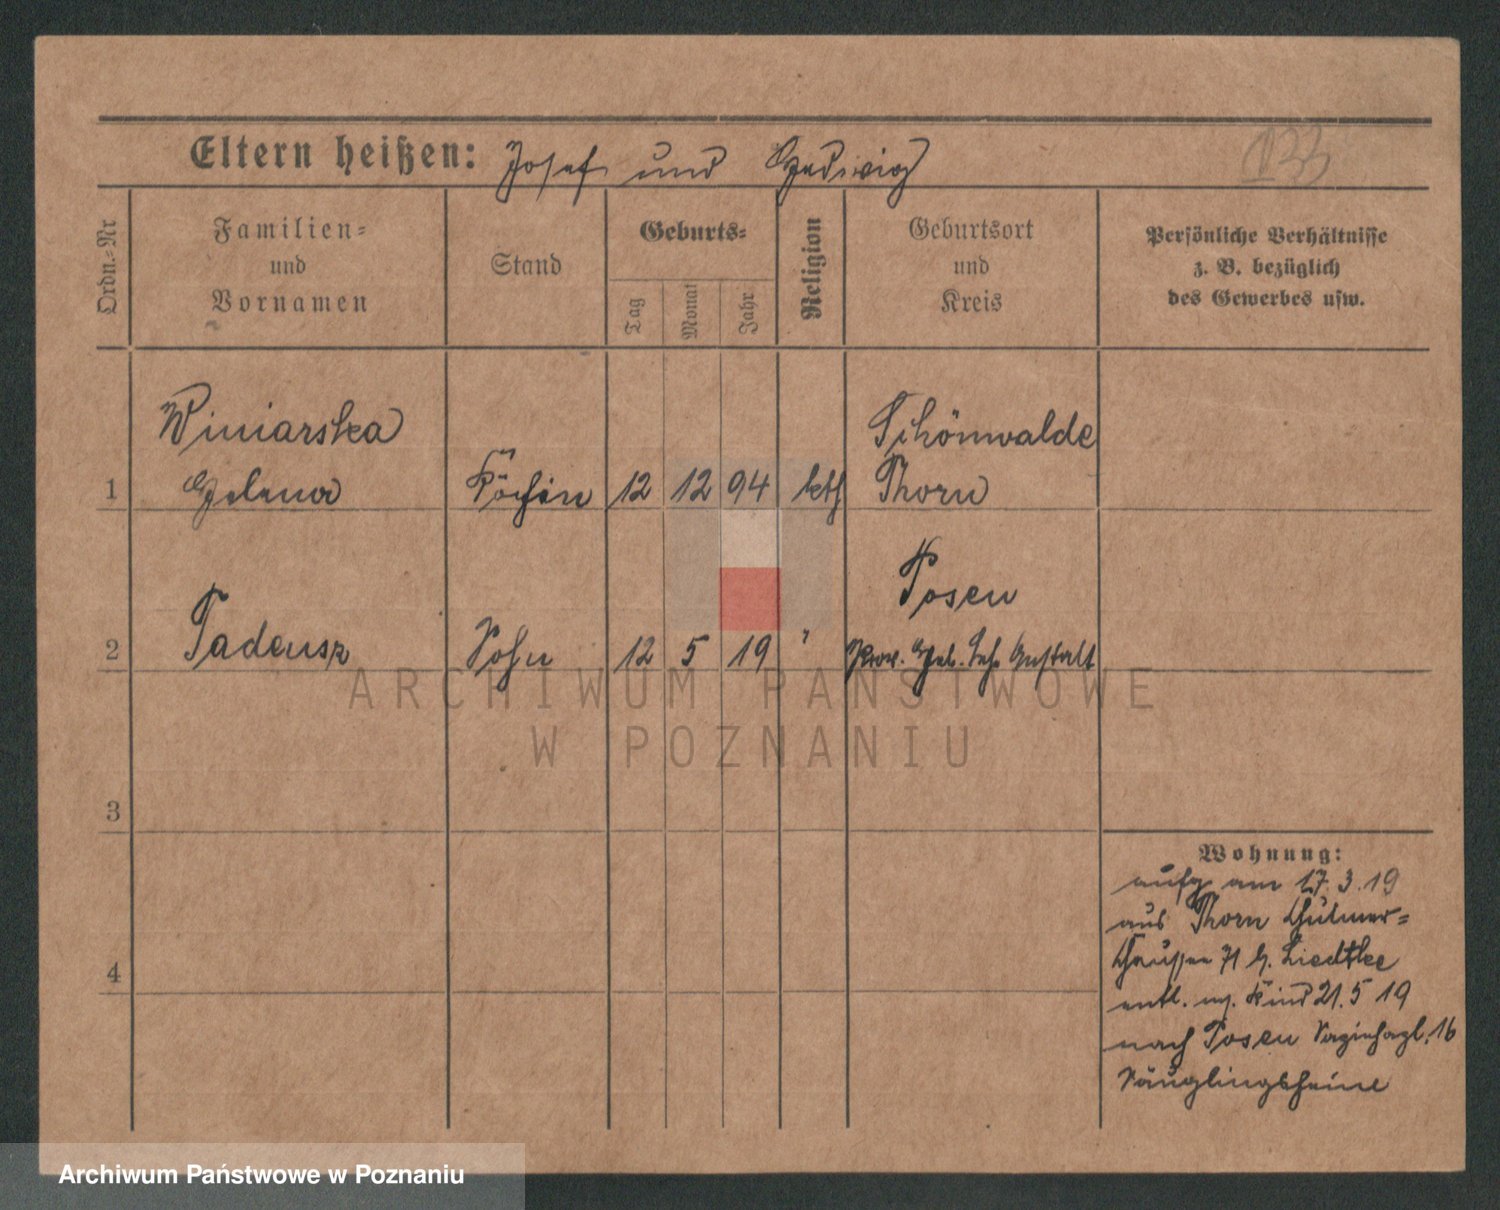 Eltern heißen: Josef und Hedwig
133
Ordn.-Nr
Familien-
und
Vornamen
Stand
Geburts-
Tag
Monat
Jahr
Religion
Geburtsort
und
Kreis
Persönliche Verhältnisse
z. B. bezüglich
des Gewerbes usw.
Winiarska
Schönwalde
1 Helena Köchin 12 12 94 kath Thorn
Posen
2 Tadeusz Sohn 12 5 19 " Prov. Heb. Leh. Anstalt
ARCHIWUM PAŃSTWOWE
W POZNANIU
3
4
Wohnung:
aufg am 17.3.19
aus Thorn Culmer-
Chaussee 71 b. Liedtke
entl. m. Kind 21.5 19
nach Posen 16
Säuglingsheim
Archiwum Państwowe w Poznaniu